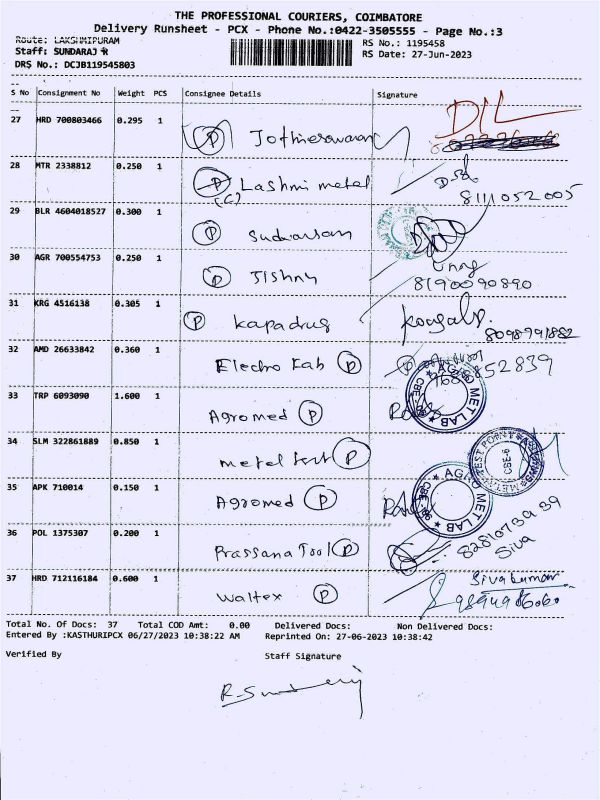 THE PROFESSIONAL COURIERS, COIMBATORE
Delivery Runsheet - PCX - Phone No.:0422-3505555 - Page No.:3
Route: LAKSHMIPURAM
RS No.: 1195458
Staff: SUNDARAJ R
RS Date: 27-Jun-2023
DRS No.: DCJB119545803
S No Consignment No Weight PCS Consignee Details Signature
27 HRD 700803466 0.295 1 P Jothieswaran DIL
28 MTR 2338812 0.250 1 P Lashmi metal
(C) 8111052005
29 BLR 4604018527 0.300 1 P Sudarsan
30 AGR 700554753 0.250 1 P Jishny
8190090890
31 KRG 4516138 0.305 1 P Kapadrug
8098991882
32 AMD 26633842 0.360 1 Electro Lab P
AGRO MET LAB CBE-
33 TRP 6093090 1.600 1 Agromed P
34 SLM 322861889 0.850 1 metal test P
TEST POINT CBE-6
35 APK 710014 0.150 1 Agromed P
AGRO MET LAB CBE-
36 POL 1375307 0.200 1 Prassana Tool P
Siva
37 HRD 712116184 0.600 1 Waltex P Sivakumar
Total No. Of Docs: 37 Total COD Amt: 0.00 Delivered Docs: Non Delivered Docs:
Entered By :KASTHURIPCX 06/27/2023 10:38:22 AM Reprinted On: 27-06-2023 10:38:42
Verified By Staff Signature